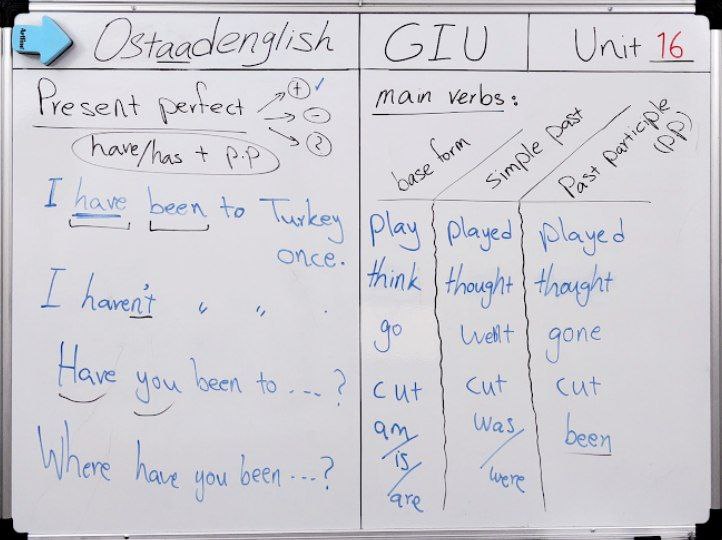 Artline
Ostaadenglish
GIU
Unit 16
Present perfect
+ ✓
-
?
have/has + p.p
I have been to Turkey
once.
I haven't " " .
Have you been to ....?
Where have you been ....?
main verbs:
base form simple past Past participle (PP)
play played played
think thought thought
go went gone
cut cut cut
am/is/are was/were been